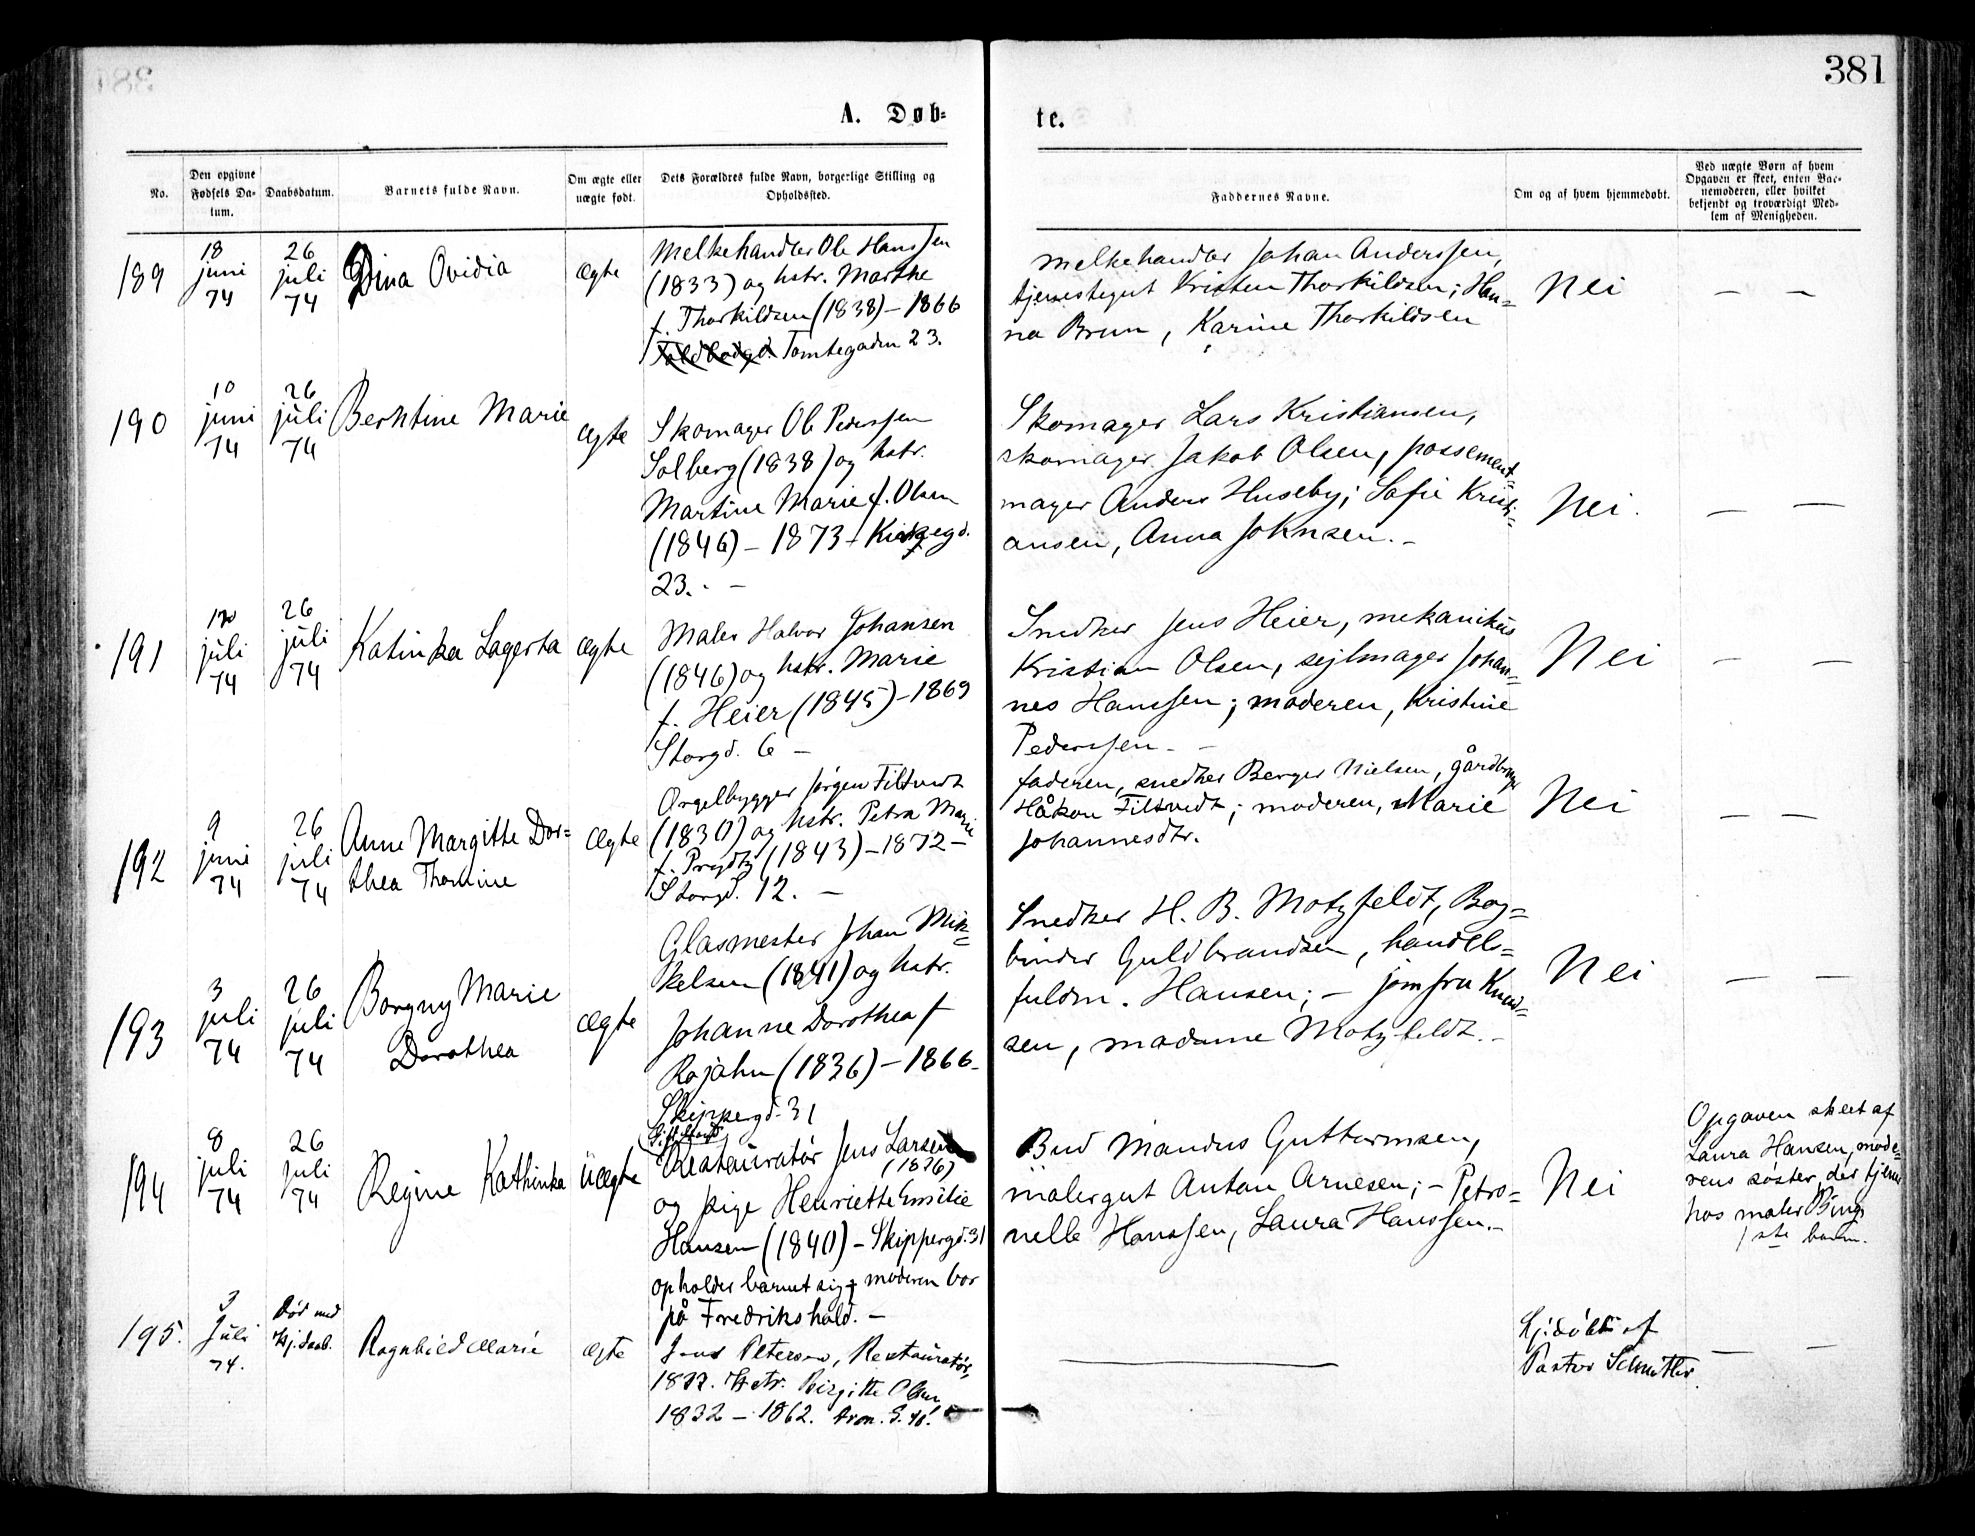 381
A. Døb-
te.
No.
Den opgivne
Fødsels Da-
tum.
Daabsdatum.
Barnets fulde Navn.
Om ægte eller
uægte født.
Dets Forældres fulde Navn, borgerlige Stilling og
Opholdssted.
Faddernes Navne.
Om og af hvem hjemmedøbt.
Ved uægte Børn af hvem
Opgaven er skeet, enten Bar-
nemoderen, eller hvilket
bekjendt og troværdigt Med-
lem af Menigheden.
189
18
juni
74
26
juli
74
Dina Ovidia
ægte
Melkehandler Ole Hanssen
(1833) og hstr. Marthe
f. Thorkildsen (1838) – 1866
Toldbodgd. Tomtegaden 23.
Melkehandler Johan Anderssen,
tjenestegut Kristen Thorkildsen; Han=
na Brun, Karine Thorkildsen
Nei
— —
190
10
juni
74
26
juli
74
Berntine Marie
ægte
Skomager Ole Pederssen
Solberg (1838) og hstr.
Martine Marie f. Olsen
(1846) – 1873 – Kirkegd.
23. –
Skomager Lars Kristiansen,
skomager Jakob Olsen, possement=
mager Anders Huseby; Sofie Kristi=
ansen, Anna Johnsen. –
Nei.
— —
191
juli
74
26
juli
74
Katinka Lagerta
ægte
Maler Halvor Johansen
(1846) og hstr. Marie
f. Heier (1845) – 1869
Storgd. 6 –
Snedker Jens Heier, mekanikus
Kristian Olsen, sejlmager Johan=
nes Hanssen; moderen, Kristine
Pederssen. –
Nei
— —
192
9
juni
74
26
juli
74
Anne Margitte Dor=
thea Thomine
ægte
Orgelbygger Jørgen Filtvedt
(1830) og hstr. Petra Marie
f. Prydtz (1843) – 1872 –
Storgd. 12. –
faderen, snedker Berger Nielsen, gårdbrug
Håkon Filtvedt; moderen, Marie
Johannesdtr.
Nei
— —
193
3
juli
74
26
juli
74
Borgny Marie
Dorothea
ægte
Glasmester Johan Mik=
kelsen (1841) og hstr.
Johanne Dorothea f
Rojahn (1836) – 1866 –
Skippergd. 31
Snedker H. B. Motzfeldt, Bog=
binder Guldbrandsen, handels=
fuldm. Hansen; – jomfru Knud=
sen, madame Motzfeldt. –
Nei
— —
194
8
juli
74
26
juli
74
Regine Kathinka
uægte
Restauratør Jens Larsen
(1836)
og pige Henriette Emilie
Hansen (1840) – Skippergd. 31
opholder barnet sig, moderen bor
på Fredrikshald. –
Bud Mandus Guttormsen,
malergut Anton Arnesen; – Petro=
nelle Hanssen, Laura Hanssen. –
Nei
Opgaven skeet af
Laura Hansen, mode=
rens søster, der tjener
hos maler Bing
1ste barn.
195.
3
Juli
74.
Død med
Hj.daab.
Ragnhild Marie
ægte
Jens Petersen, Restauratør,
1837. Hstr. Birgitte Olsen
1832 – 1862. Dron. G. 40.
Hj.døbt af
Pastor Schnitler.
— —